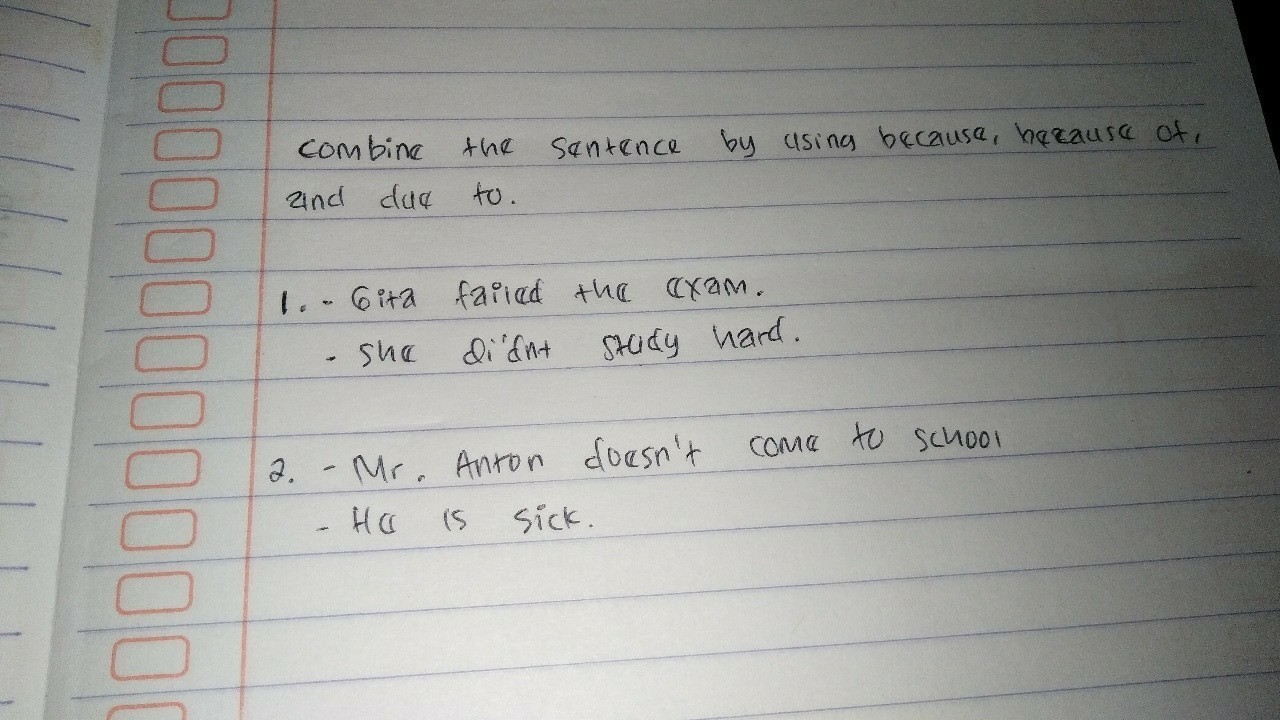 combine the sentence by using because, because of,
and due to.
1. - Gita failed the exam.
- she di'dnt study hard.
2. - Mr. Anton doesn't come to school
- He is sick.